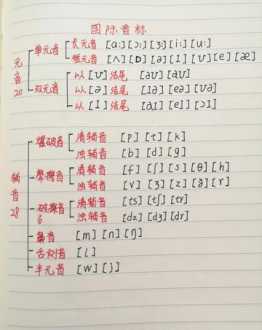 国际音标
元音20
单元音
长元音 [ɑ:] [ɔ:] [ɜ:] [i:] [u:]
短元音 [ʌ] [ɒ] [ə] [ɪ] [ʊ] [e] [æ]
双元音
以[ʊ]结尾 [əʊ] [aʊ]
以[ə]结尾 [ɪə] [eə] [ʊə]
以[ɪ]结尾 [aɪ] [eɪ] [ɔɪ]
辅音28
爆破音
清辅音 [p] [t] [k]
浊辅音 [b] [d] [g]
摩擦音
清辅音 [f] [ʃ] [s] [θ] [h]
浊辅音 [v] [ʒ] [z] [ð] [r]
破擦音6
清辅音 [ts] [tʃ] [tr]
浊辅音 [dz] [dʒ] [dr]
鼻音 [m] [n] [ŋ]
舌侧音 [l]
半元音 [w] [j]